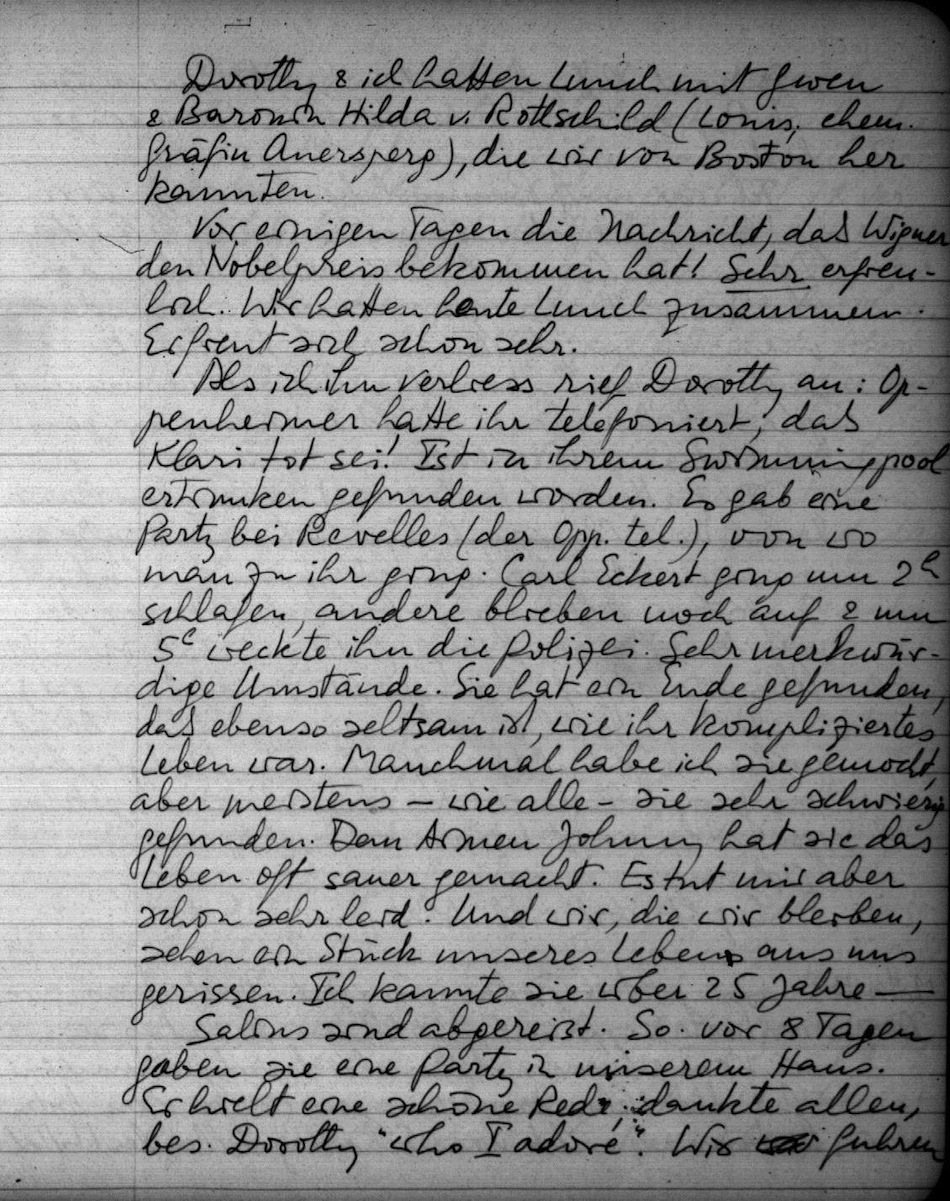 Dorothy & ich hatten Lunch mit Gwen
& Baronin Hilda v. Rothschild (Louis, ehem.
Gräfin Auersperg), die wir von Boston her
kannten.
Vor einigen Tagen die Nachricht, das Wigner
den Nobelpreis bekommen hat! Sehr erfreu-
lich. Wir hatten heute Lunch zusammen.
Er freut sich schon sehr.
Als ich ihn verliess rief Dorothy an: Op-
penheimer hatte ihr telefoniert, das
Klari tot sei! Ist in ihrem Swimmingpool
ertrunken gefunden worden. Es gab eine
Party bei Revelles (der Opp. tel.), von wo
man zu ihr ging. Carl Eckert ging um 2h
schlafen, andere blieben noch auf & um
5h weckte ihn die Polizei. Sehr merkwür-
dige Umstände. Sie hat ein Ende gefunden,
das ebenso seltsam ist, wie ihr kompliziertes
Leben war. Manchmal habe ich sie gemocht,
aber meistens – wie alle – sie sehr schwierig
gefunden. Dem Armen Johnny hat sie das
Leben oft sauer gemacht. Es tut mir aber
schon sehr leid. Und wir, die wir bleiben,
sehen ein Stück unseres Lebens aus uns
gerissen. Ich kannte sie über 25 Jahre —
Salins sind abgereist. So. vor 8 Tagen
gaben sie eine Party in unserem Haus.
Er hielt eine schöne Rede, dankte allen,
bes. Dorothy "who I adore". Wir fuhren